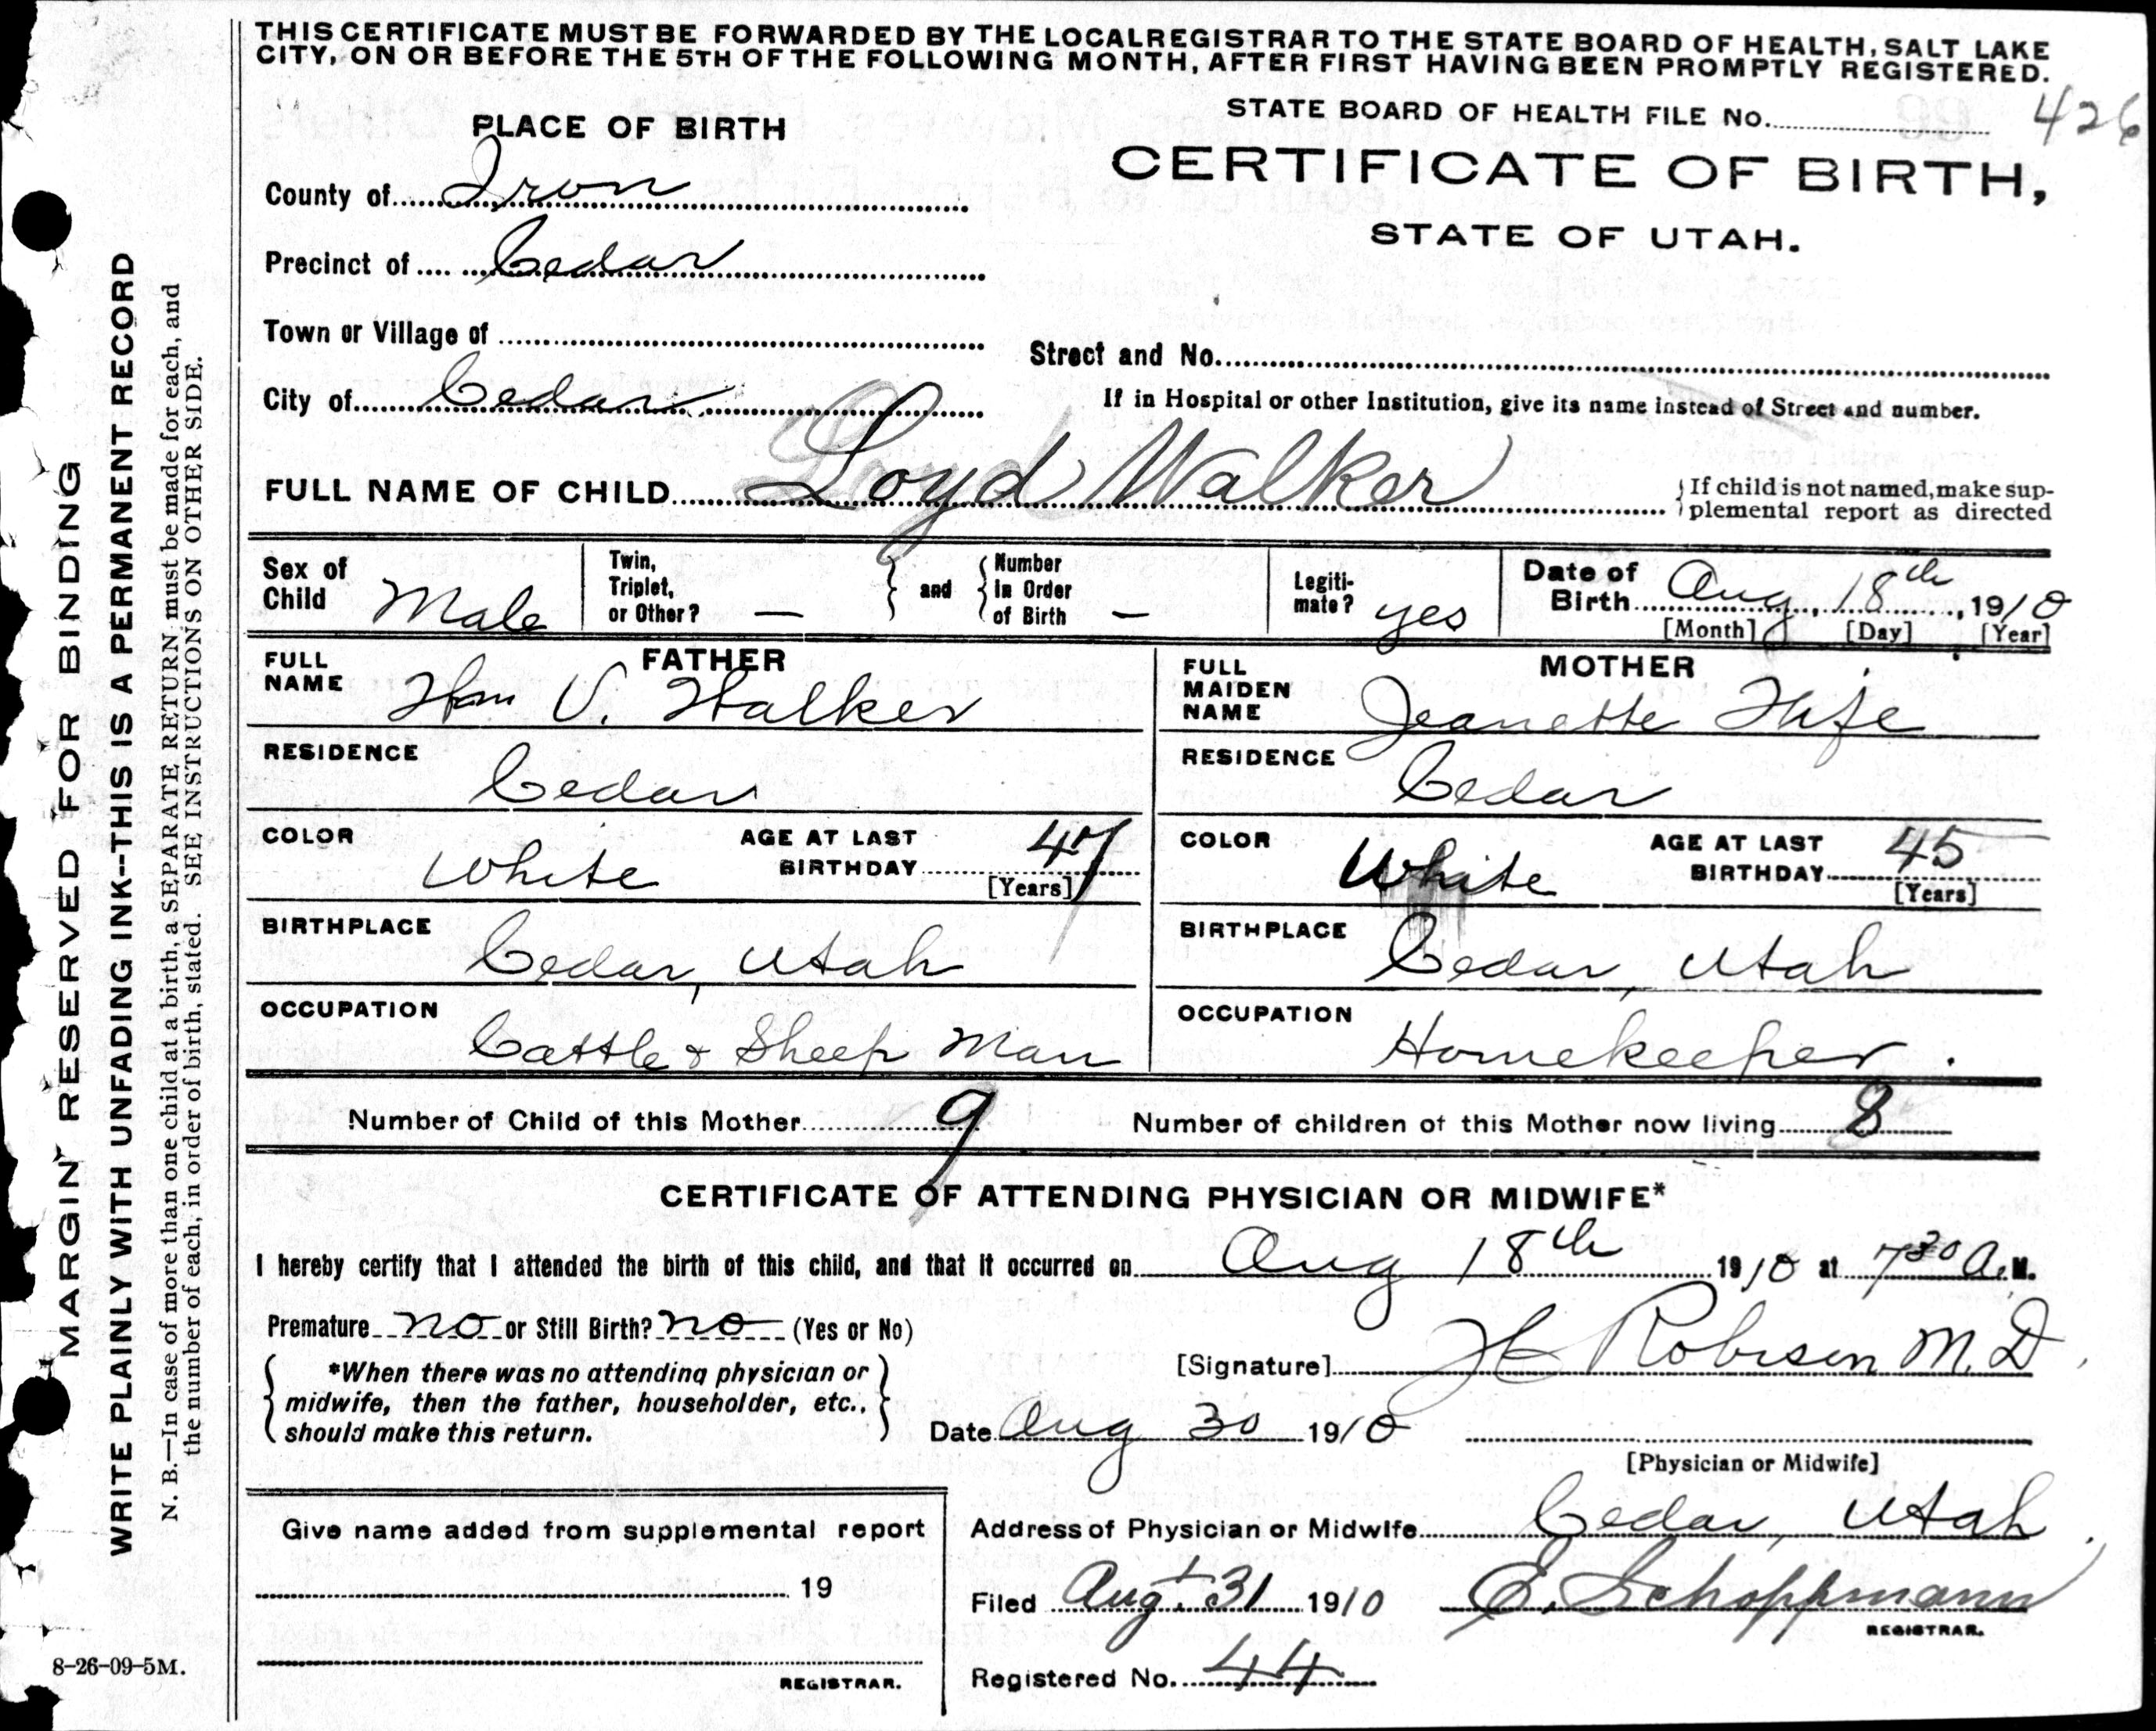 THIS CERTIFICATE MUST BE FORWARDED BY THE LOCAL REGISTRAR TO THE STATE BOARD OF HEALTH, SALT LAKE
CITY, ON OR BEFORE THE 5TH OF THE FOLLOWING MONTH, AFTER FIRST HAVING BEEN PROMPTLY REGISTERED.
STATE BOARD OF HEALTH FILE No. 426
PLACE OF BIRTH
CERTIFICATE OF BIRTH,
STATE OF UTAH.
County of Iron
Precinct of Cedar
Town or Village of
Street and No.
City of Cedar
If in Hospital or other Institution, give its name instead of Street and number.
FULL NAME OF CHILD Loyd Walker
If child is not named, make sup-
plemental report as directed
Sex of Child Male
Twin, Triplet, or Other? —
and
Number In Order of Birth —
Legiti-mate? yes
Date of Birth Aug, 18th, 1910
[Month] [Day] [Year]
FATHER
FULL NAME Wm V. Walker
RESIDENCE
Cedar
COLOR White
AGE AT LAST BIRTHDAY 47
[Years]
BIRTHPLACE
Cedar, Utah
OCCUPATION
Cattle & Sheep Man
MOTHER
FULL MAIDEN NAME Jeanette Fife
RESIDENCE
Cedar
COLOR White
AGE AT LAST BIRTHDAY 45
[Years]
BIRTHPLACE
Cedar, Utah
OCCUPATION
Homekeeper.
Number of Child of this Mother 9
Number of children of this Mother now living 8
CERTIFICATE OF ATTENDING PHYSICIAN OR MIDWIFE*
I hereby certify that I attended the birth of this child, and that it occurred on Aug 18th 1910 at 7 30 A.M.
Premature no or Still Birth? no (Yes or No)
*When there was no attending physician or
midwife, then the father, householder, etc.,
should make this return.
[Signature] Robison M.D.
Date Aug 30 1910
[Physician or Midwife]
Give name added from supplemental report
19
REGISTRAR.
Address of Physician or Midwife Cedar, Utah.
Filed Augt. 31 1910 E. Schoppmann
REGISTRAR.
Registered No. 44
8-26-09-5M.
MARGIN RESERVED FOR BINDING
WRITE PLAINLY WITH UNFADING INK--THIS IS A PERMANENT RECORD
N. B.—In case of more than one child at a birth, a SEPARATE RETURN must be made for each, and
the number of each, in order of birth, stated. SEE INSTRUCTIONS ON OTHER SIDE.